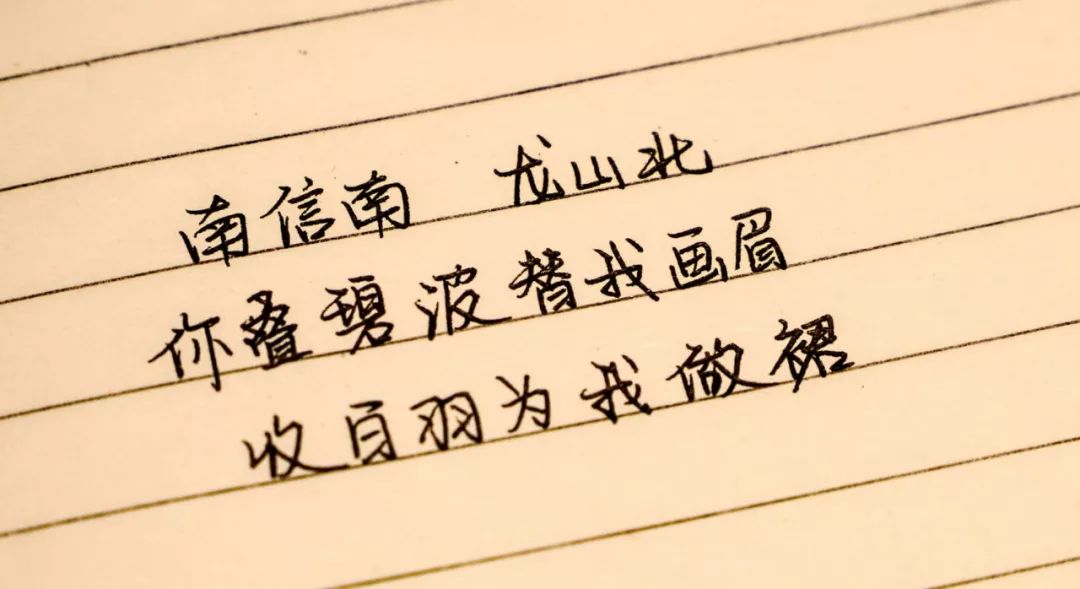 南信南 龙山北
你叠碧波替我画眉
收白羽为我做裙